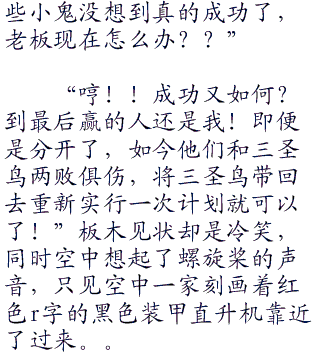 些小鬼没想到真的成功了，
老板现在怎么办？？”
“哼！！成功又如何？
到最后赢的人还是我！即便
是分开了，如今他们和三圣
鸟两败俱伤，将三圣鸟带回
去重新实行一次计划就可以
了！”板木见状却是冷笑，
同时空中想起了螺旋桨的声
音，只见空中一家刻画着红
色r字的黑色装甲直升机靠近
了过来。。